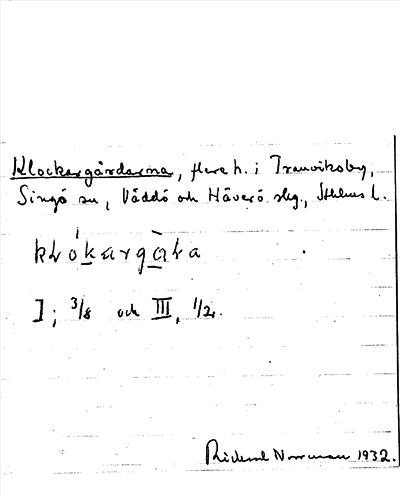 Klockargårdarna, flere h. i Tranviksby,
Singö sn, Väddö och Häverö skg., Sthlms l.
klókargàḷa
I; 3/8 och III, 1/2.
Rickard Norrman 1932.